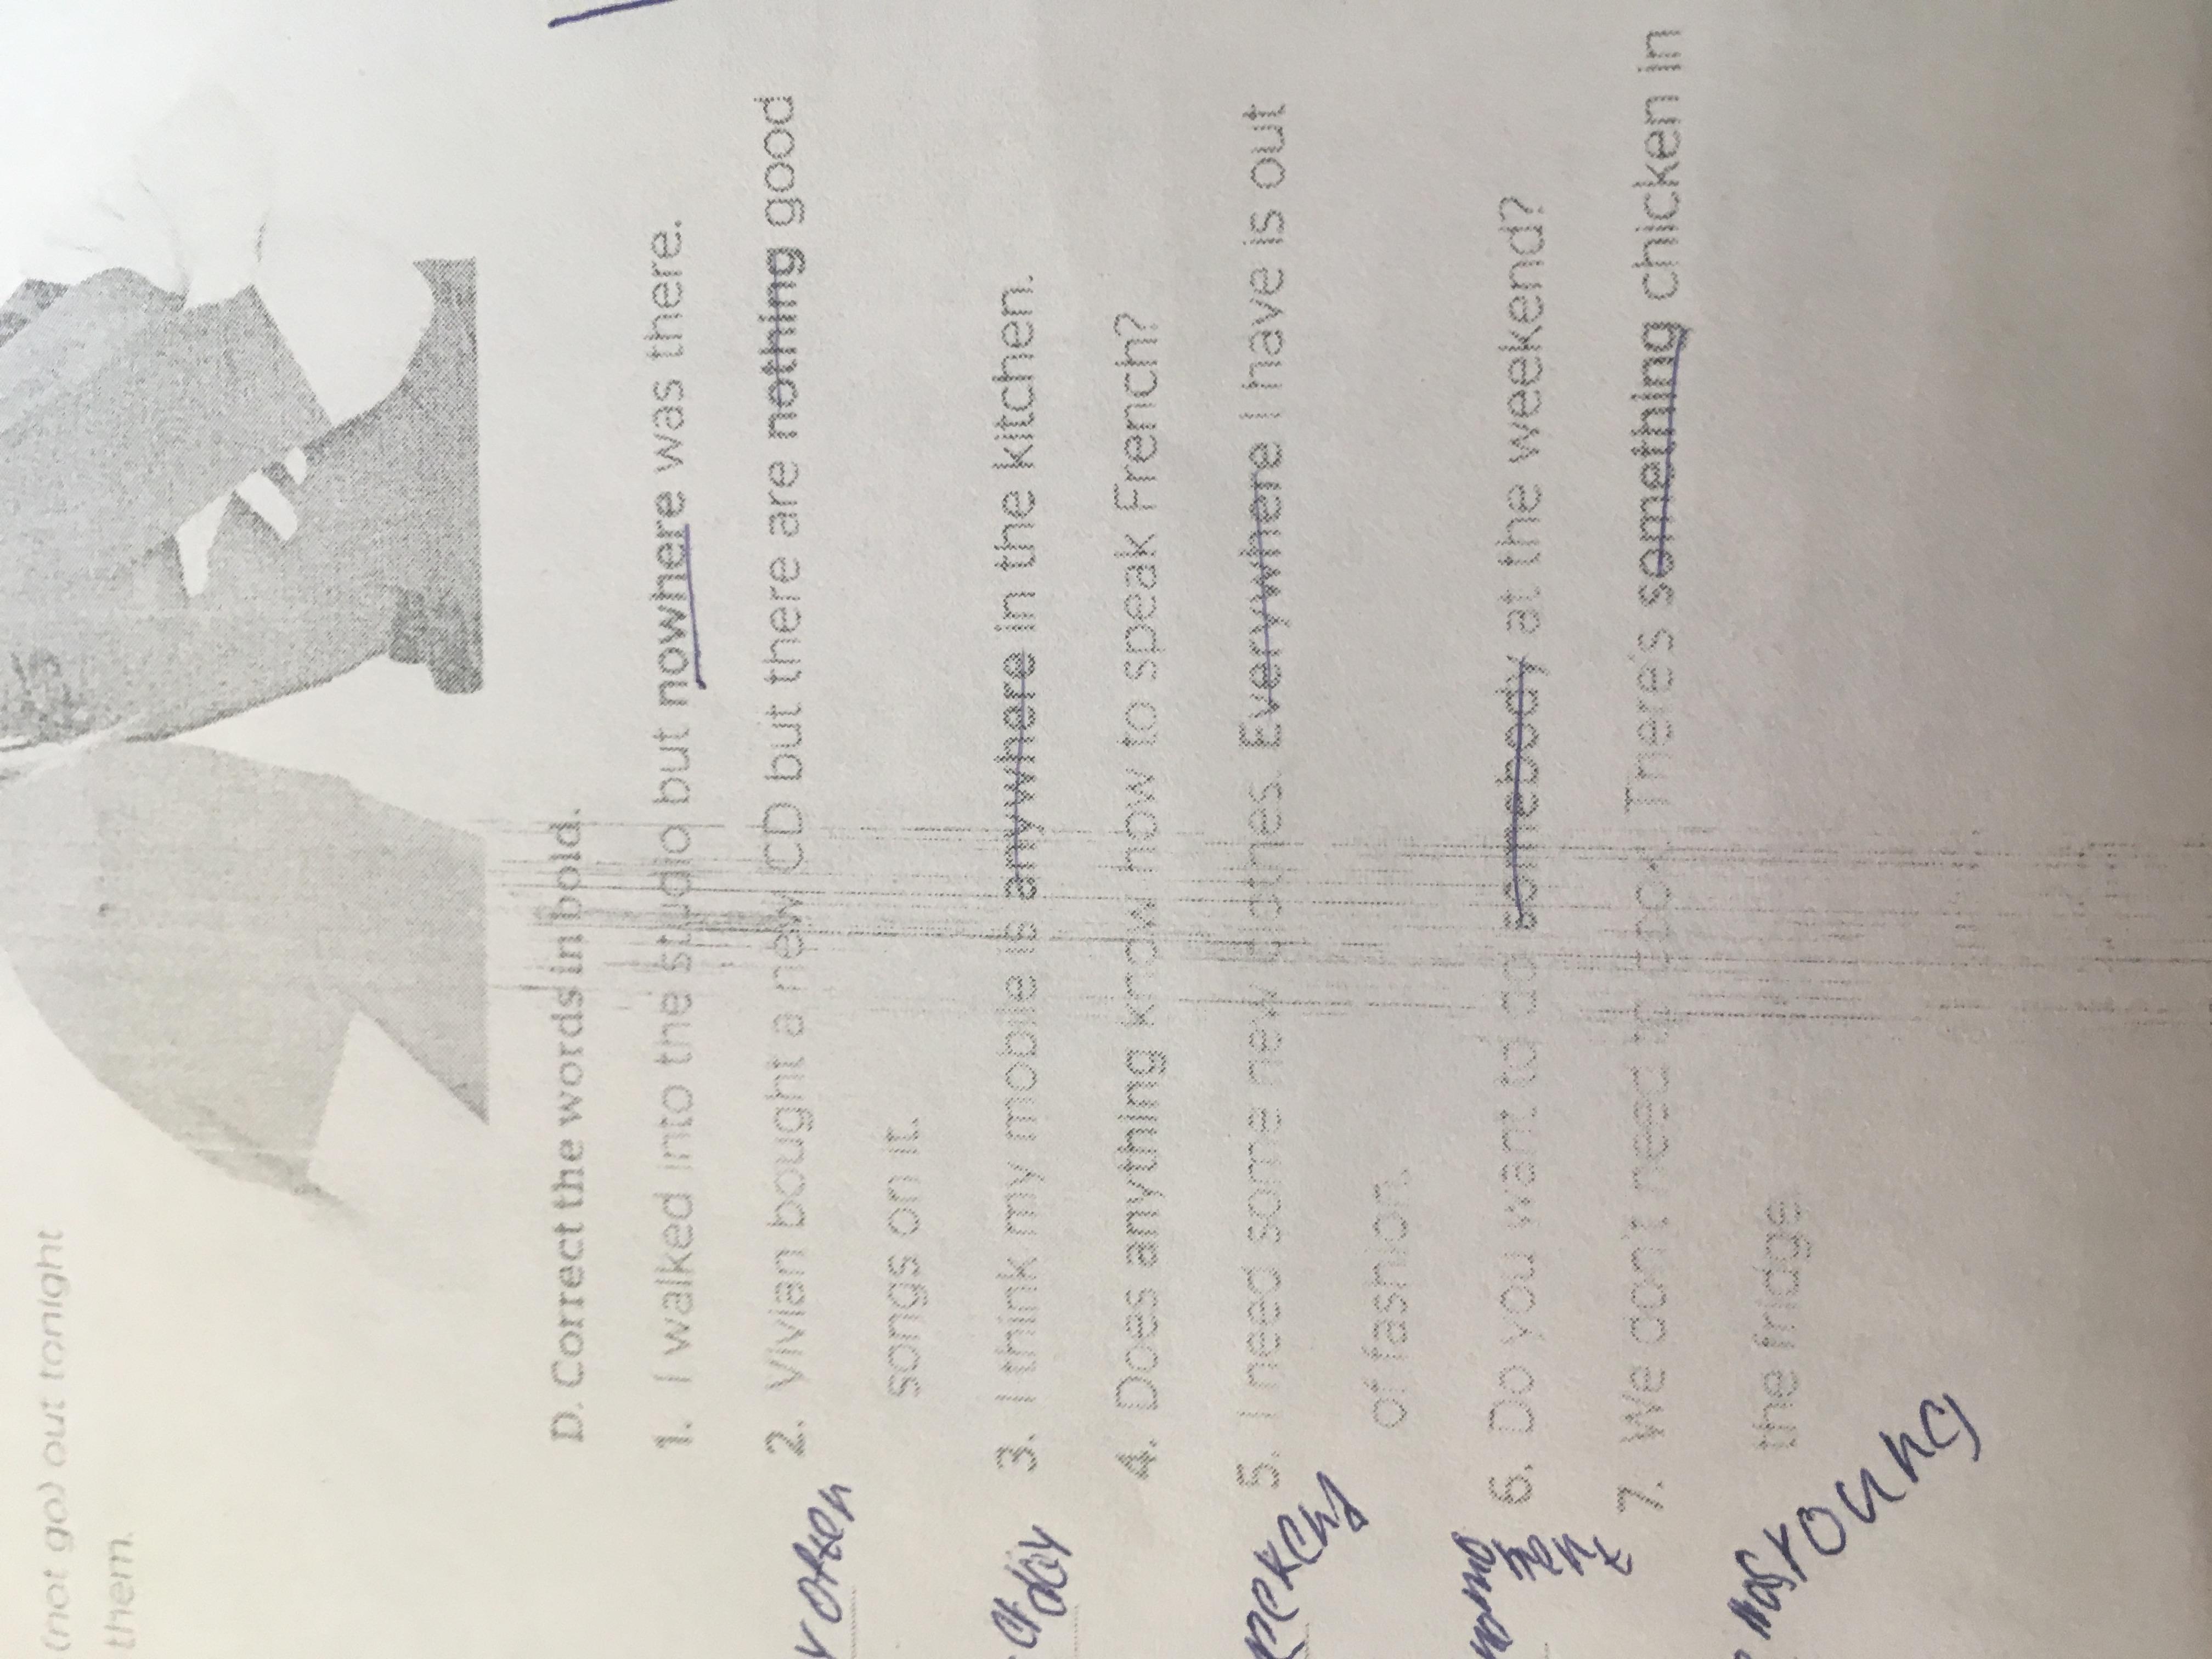 (not go) out tonight
them.
D. Correct the words in bold.
1. I walked into the studio but nowhere was there.
2. Vivian bought a new CD but there are nothing good
songs on it.
3. I think my mobile is anywhere in the kitchen.
4. Does anything know how to speak French?
5. I need some new clothes. Everywhere I have is out
of fashion.
6. Do you want to do somebody at the weekend?
7. We don't need to cook. There's something chicken in
the fridge.
often
day